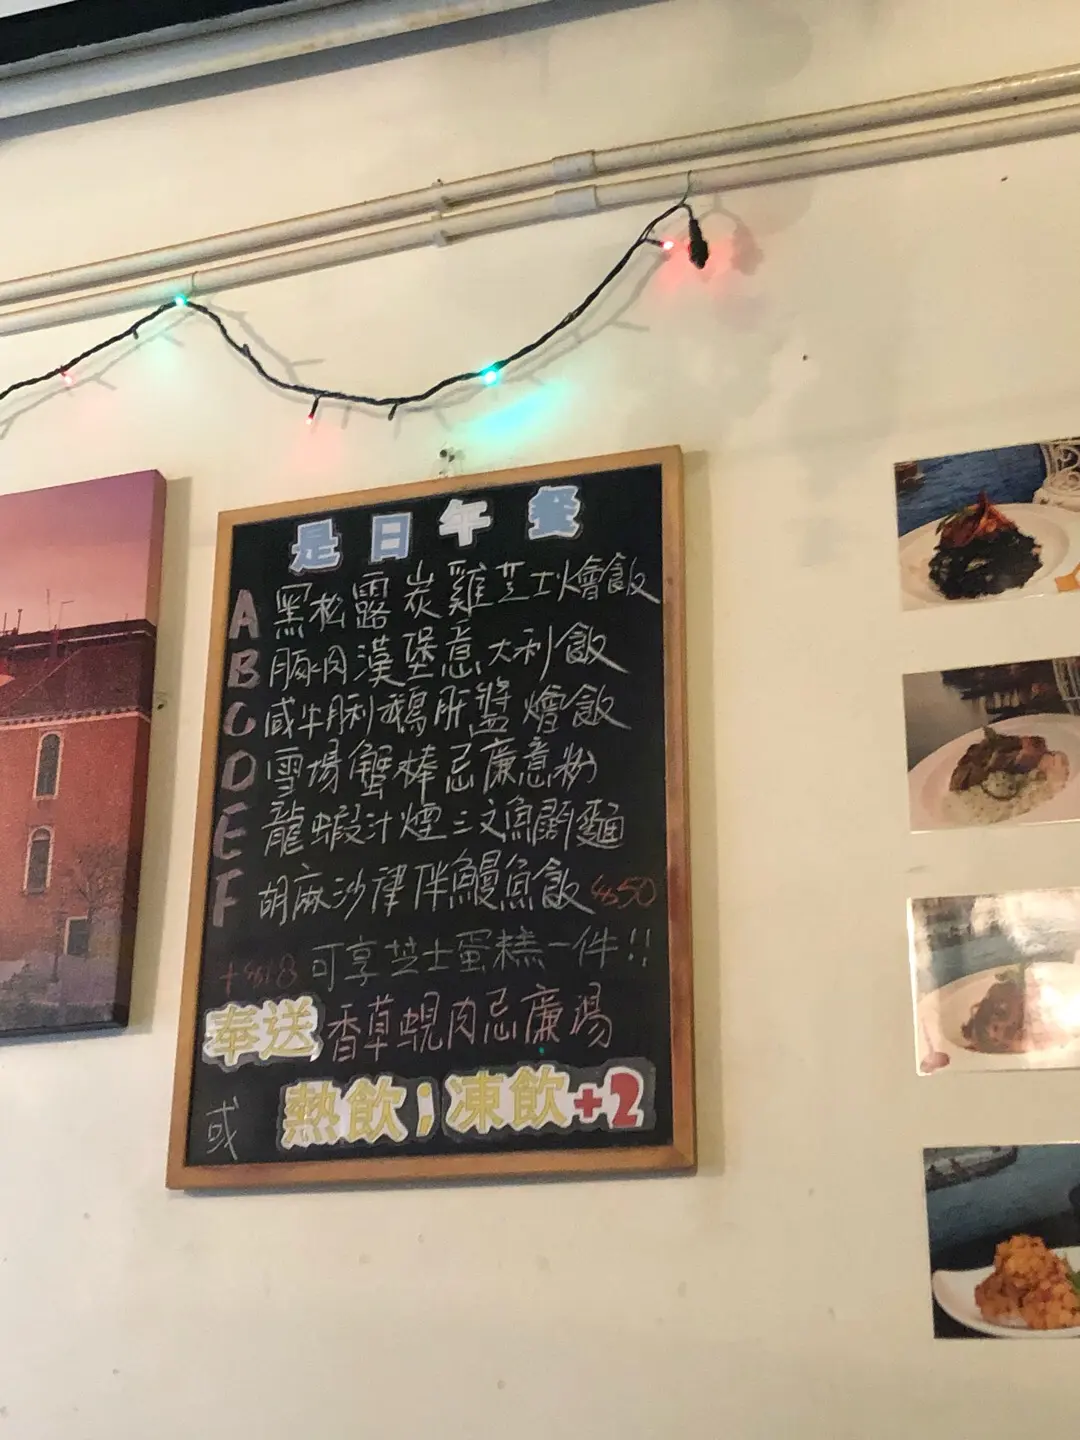 是日午餐
A 黑松露炭雞芝士燴飯
B 豚肉漢堡意大利飯
C 咸牛脷鵝肝醬燴飯
D 雪場蟹棒忌廉意粉
E 龍蝦汁煙三文魚闊麵
F 胡麻沙律伴鰻魚飯 $50
+$18 可享芝士蛋糕一件!!
奉送 香草蜆肉忌廉湯
或 熱飲;凍飲+2